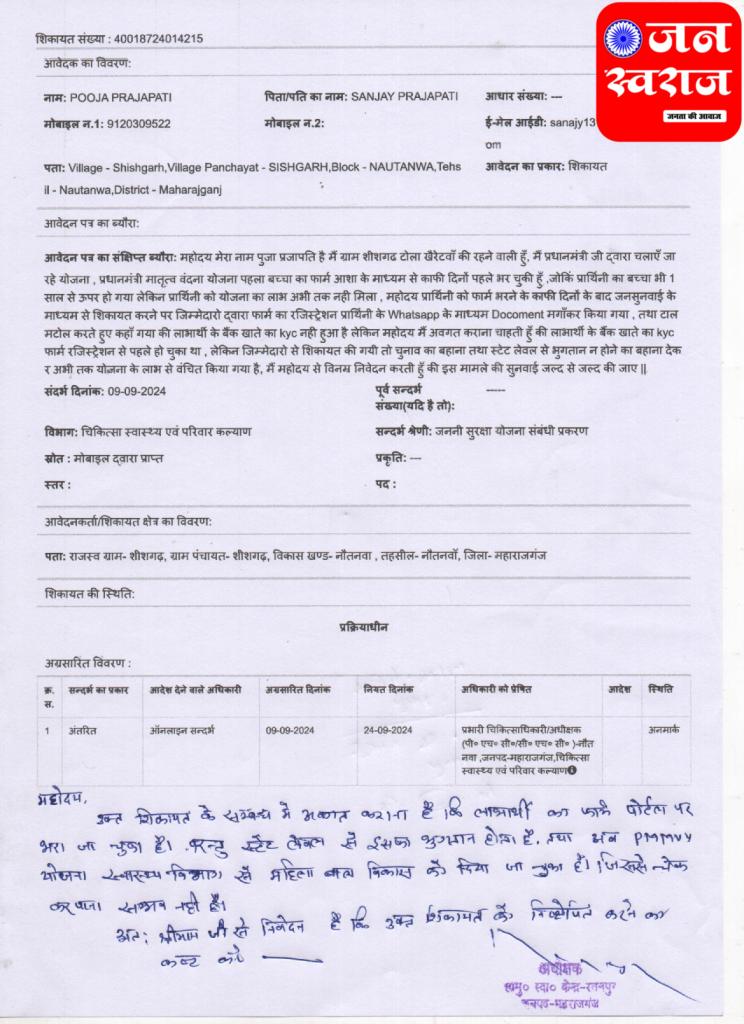 जन
स्वराज
जनता की आवाज
शिकायत संख्या : 40018724014215
आवेदक का विवरण:
नाम: POOJA PRAJAPATI पिता/पति का नाम: SANJAY PRAJAPATI आधार संख्या: ---
मोबाइल न.1: 9120309522 मोबाइल न.2: ई-मेल आईडी: sanajy13
om
पता: Village - Shishgarh,Village Panchayat - SISHGARH,Block - NAUTANWA,Tehs आवेदन का प्रकार: शिकायत
il - Nautanwa,District - Maharajganj
आवेदन पत्र का ब्यौरा:
आवेदन पत्र का संक्षिप्त ब्यौरा: महोदय मेरा नाम पुजा प्रजापति है मैं ग्राम शीशगढ टोला खैरेटवाँ की रहने वाली हूँ, मैं प्रधानमंत्री जी द्वारा चलाएँ जा
रहे योजना , प्रधानमंत्री मातृत्व वंदना योजना पहला बच्चा का फार्म आशा के माध्यम से काफी दिनों पहले भर चुकी हूँ ,जोकिं प्रार्थिनी का बच्चा भी 1
साल से ऊपर हो गया लेकिन प्रार्थिनी को योजना का लाभ अभी तक नही मिला , महोदय प्रार्थिनी को फार्म भरने के काफी दिनों के बाद जनसुनवाई के
माध्यम से शिकायत करने पर जिम्मेदारो द्वारा फार्म का रजिस्ट्रेशन प्रार्थिनी के Whatsapp के माध्यम Docoment मगाँकर किया गया , तथा टाल
मटोल करते हुए कहाँ गया की लाभार्थी के बैंक खाते का kyc नही हुआ है लेकिन महोदय मैं अवगत कराना चाहती हूँ की लाभार्थी के बैंक खाते का kyc
फार्म रजिस्ट्रेशन से पहले हो चुका था , लेकिन जिम्मेदारो से शिकायत की गयी तो चुनाव का बहाना तथा स्टेट लेवल से भुगतान न होने का बहाना देक
र अभी तक योजना के लाभ से वंचित किया गया है, मैं महोदय से विनम्र निवेदन करती हूँ की इस मामले की सुनवाई जल्द से जल्द की जाए ||
संदर्भ दिनांक: 09-09-2024 पूर्व सन्दर्भ -----
संख्या(यदि है तो):
विभाग: चिकित्सा स्वास्थ्य एवं परिवार कल्याण सन्दर्भ श्रेणी: जननी सुरक्षा योजना संबंधी प्रकरण
स्रोत : मोबाइल द्वारा प्राप्त प्रकृति: ---
स्तर : पद :
आवेदनकर्ता/शिकायत क्षेत्र का विवरण:
पता: राजस्व ग्राम- शीशगढ़, ग्राम पंचायत- शीशगढ़, विकास खण्ड- नौतनवा , तहसील- नौतनवाँ, जिला- महाराजगंज
शिकायत की स्थिति:
प्रक्रियाधीन
अग्रसारित विवरण :
क्र. सन्दर्भ का प्रकार आदेश देने वाले अधिकारी अग्रसारित दिनांक नियत दिनांक अधिकारी को प्रेषित आदेश स्थिति
स.
1 अंतरित ऑनलाइन सन्दर्भ 09-09-2024 24-09-2024 प्रभारी चिकित्साधिकारी/अधीक्षक अनमार्क
(पी० एच० सी०/सी० एच० सी० )-नौत
नवा ,जनपद-महाराजगंज,चिकित्सा
स्वास्थ्य एवं परिवार कल्याण
महोदय,
उक्त शिकायत के सम्बन्ध में अवगत कराना है कि लाभार्थी का फार्म पोर्टल पर
भरा जा चुका है। परन्तु स्टेट लेवल से इसका भुगतान होता है, तथा अब PMMVY
योजना स्वास्थ्य विभाग से महिला बाल विकास को दिया जा चुका है। जिससे चेक
कर पाना सम्भव नही है।
अतः श्रीमान जी से निवेदन है कि उक्त शिकायत को निक्षेपित करने का
कष्ट करें
अधीक्षक
सामु० स्वा० केन्द्र-रतनपुर
जनपद-महराजगंज